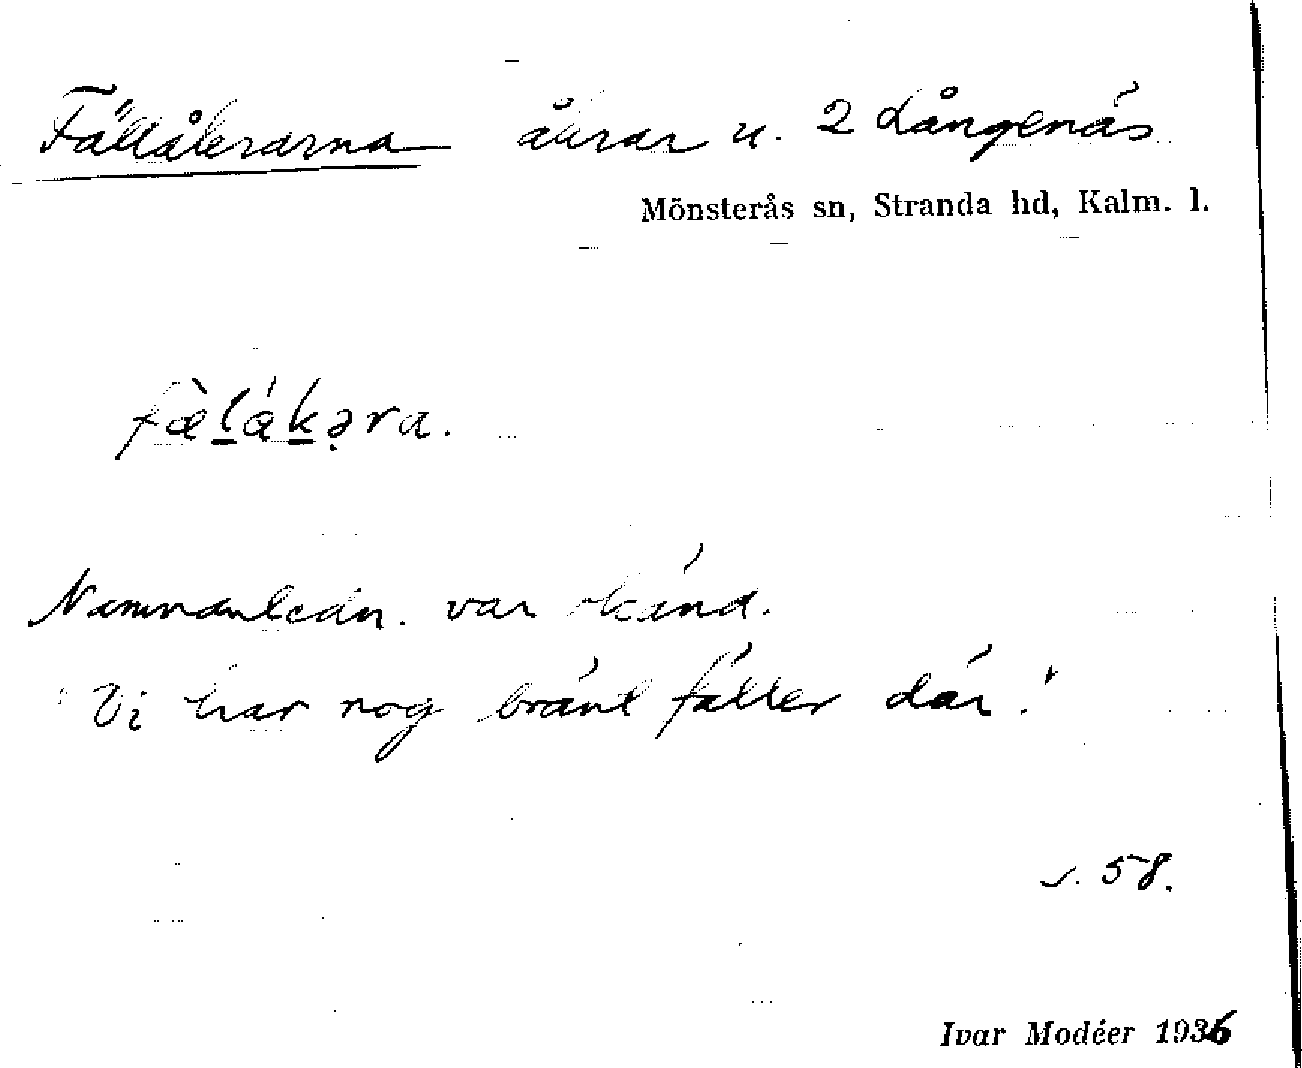 Fällåkrarna åkrar u. 2 Långenäs
Mönsterås sn, Stranda hd, Kalm. l.
fæ̀l̲ák̲ə̣ra.
Namnanledn. var okänd.
"Vi har nog bränt fäller där."
s. 58.
Ivar Modéer 1936